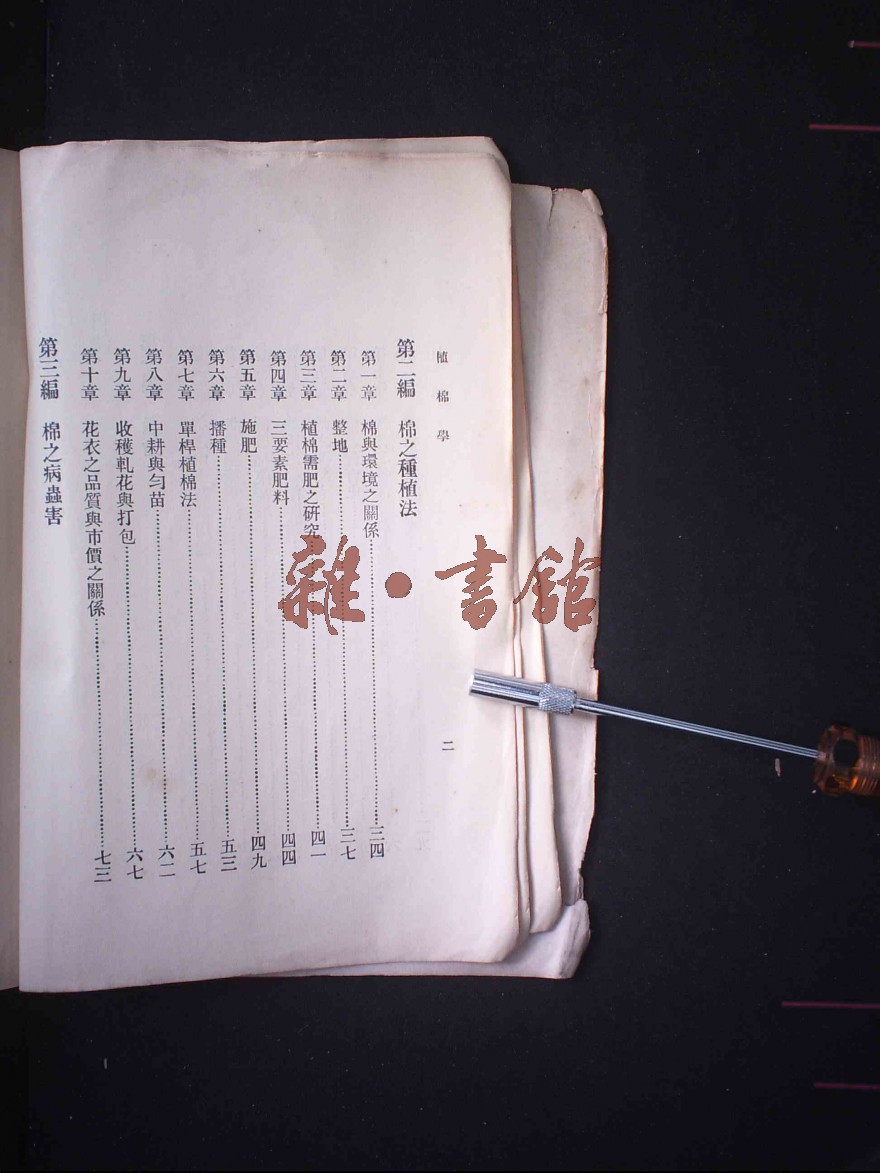 植棉學
二
第二編　棉之種植法
第一章　棉與環境之關係……三四
第二章　整地……三七
第三章　植棉需肥之研究……四一
第四章　三要素肥料……四四
第五章　施肥……四九
第六章　播種……五三
第七章　單桿植棉法……五七
第八章　中耕與勻苗……六二
第九章　收穫軋花與打包……六七
第十章　花衣之品質與市價之關係……七三
第三編　棉之病蟲害
雜·書館